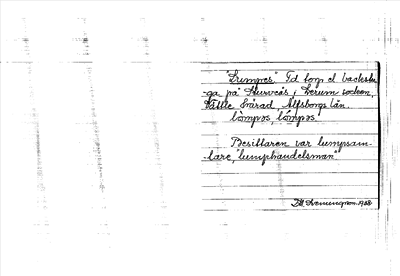 "Lumpres" Td torp el backstu-
ga på Stuvås, Lerum socken,
Vättle härad, Älfsborgs län.
lômpos, lômpos.
Besittaren var lumpsam-
lare, "lumphandelsman".
1928